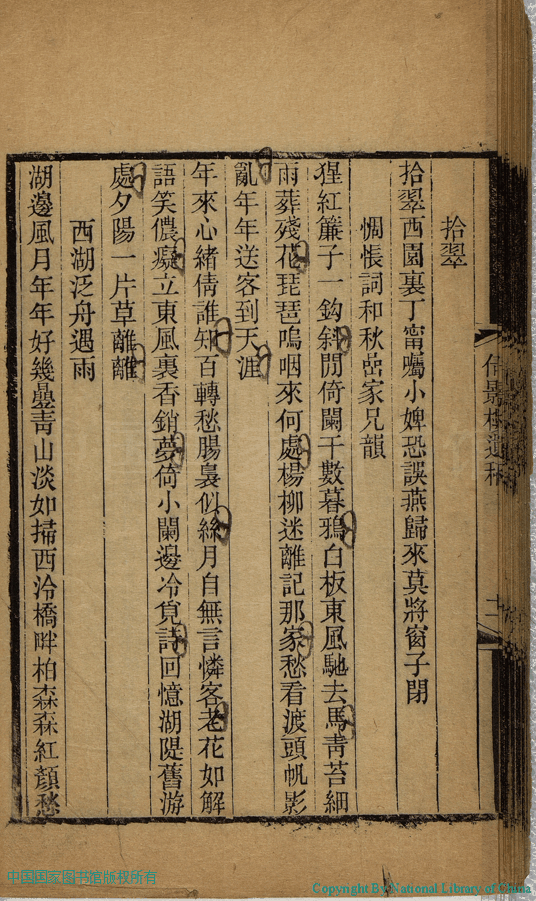 拾翠
拾翠西園裏丁甯囑小婢恐誤燕歸來莫將窗子閉
惆悵詞和秋嵒家兄韻
猩紅簾子一鈎斜閒倚闌干數暮鴉白板東風馳去馬靑苔細
雨葬殘花琵琶嗚咽來何處楊柳迷離記那家愁看渡頭帆影
亂年年送客到天涯
年來心緒倩誰知百轉愁腸裊似絲月自無言憐客老花如解
語笑儂癡立東風裏香銷夢倚小闌邊冷覓詩回憶湖隄舊游
處夕陽一片草離離
西湖泛舟遇雨
湖邊風月年年好幾疊靑山淡如掃西泠橋畔柏森森紅顏愁
倩影樓遺稿
十一
中国国家图书馆版权所有
Copyright By National Library of China